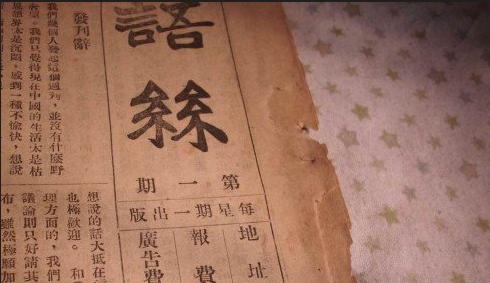 語絲
第一期
每星期一出版
地址
報費
廣告費
發刊辭
我們幾個人發起這個週刊，並沒有什麼野
奢望。我們只覺得現在中國的生活太是枯
思想界太是沉悶，感到一種不愉快，想說
想說的話大抵在
也極歡迎。和
理方面的，我們
議論則只好請其
布，雖然極願加